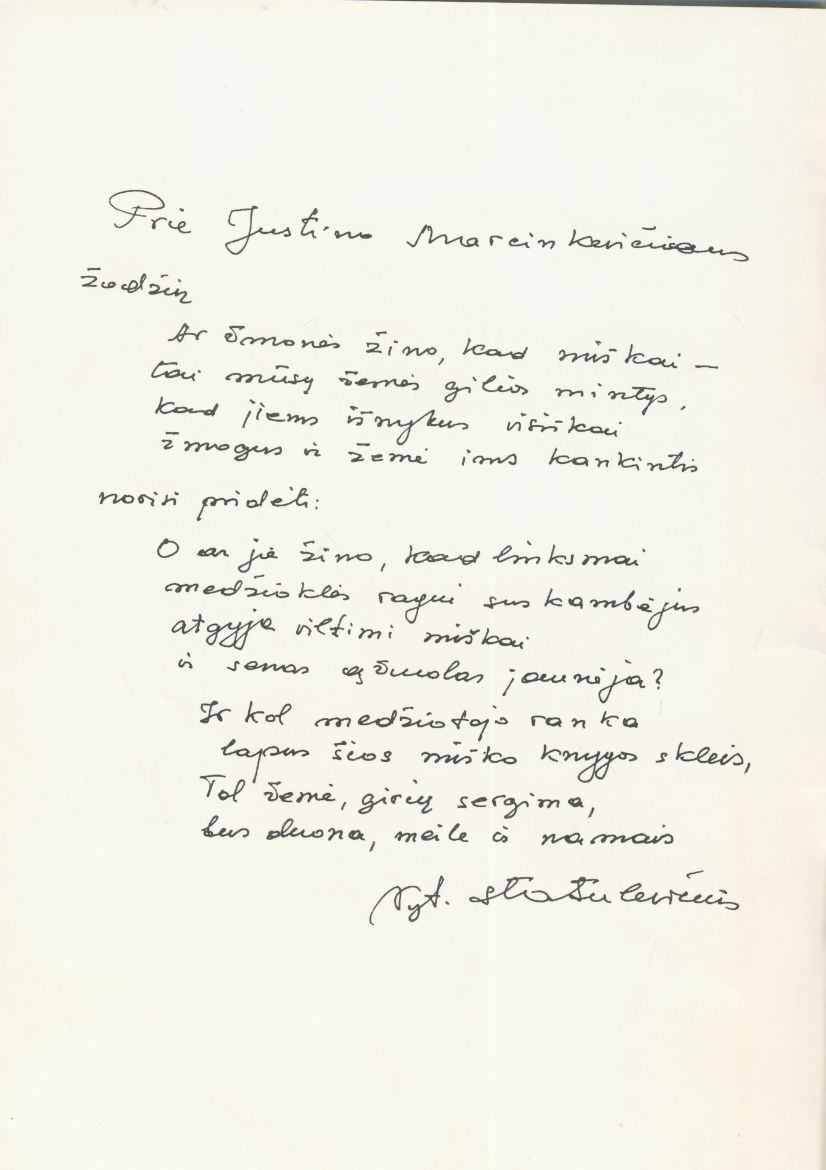 Prie Justino Marcinkevičiaus
žodžių
Ar žmonės žino, kad miškai —
tai mūsų žemės gilios mintys,
kad jiems išnykus visiškai
žmogus ir žemė ims kankintis
norisi pridėti:
O ar jie žino, kad linksmai
medžioklės ragui suskambėjus
atgyja viltimi miškai
ir senas ąžuolas jaunėja?
Ir kol medžiotojo ranka
lapus šios miško knygos skleis,
Tol žemė, girių sergima,
bus duona, meile ir namais
Vyt. Statulevičius